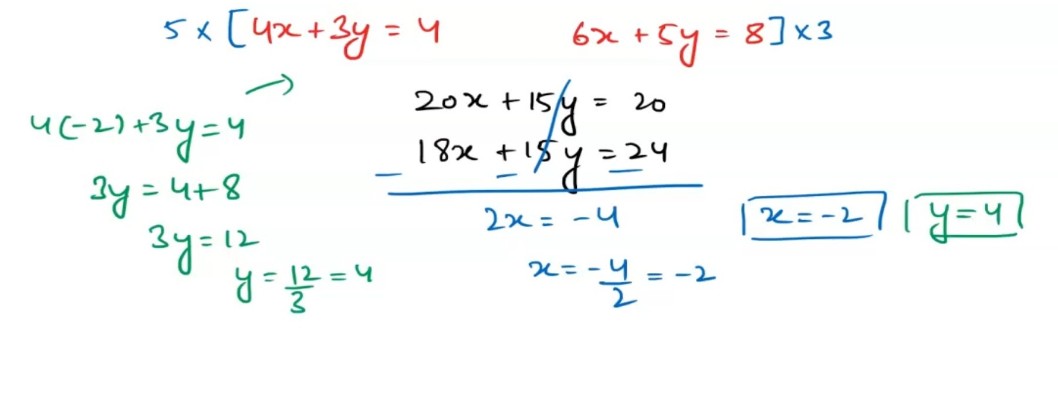 5 × [4x + 3y = 4    6x + 5y = 8] × 3
20x + 15y = 20
18x + 15y = 24
− − −
2x = -4
x = -4/2 = -2
4(-2) + 3y = 4
3y = 4 + 8
3y = 12
y = 12/3 = 4
x = -2    y = 4